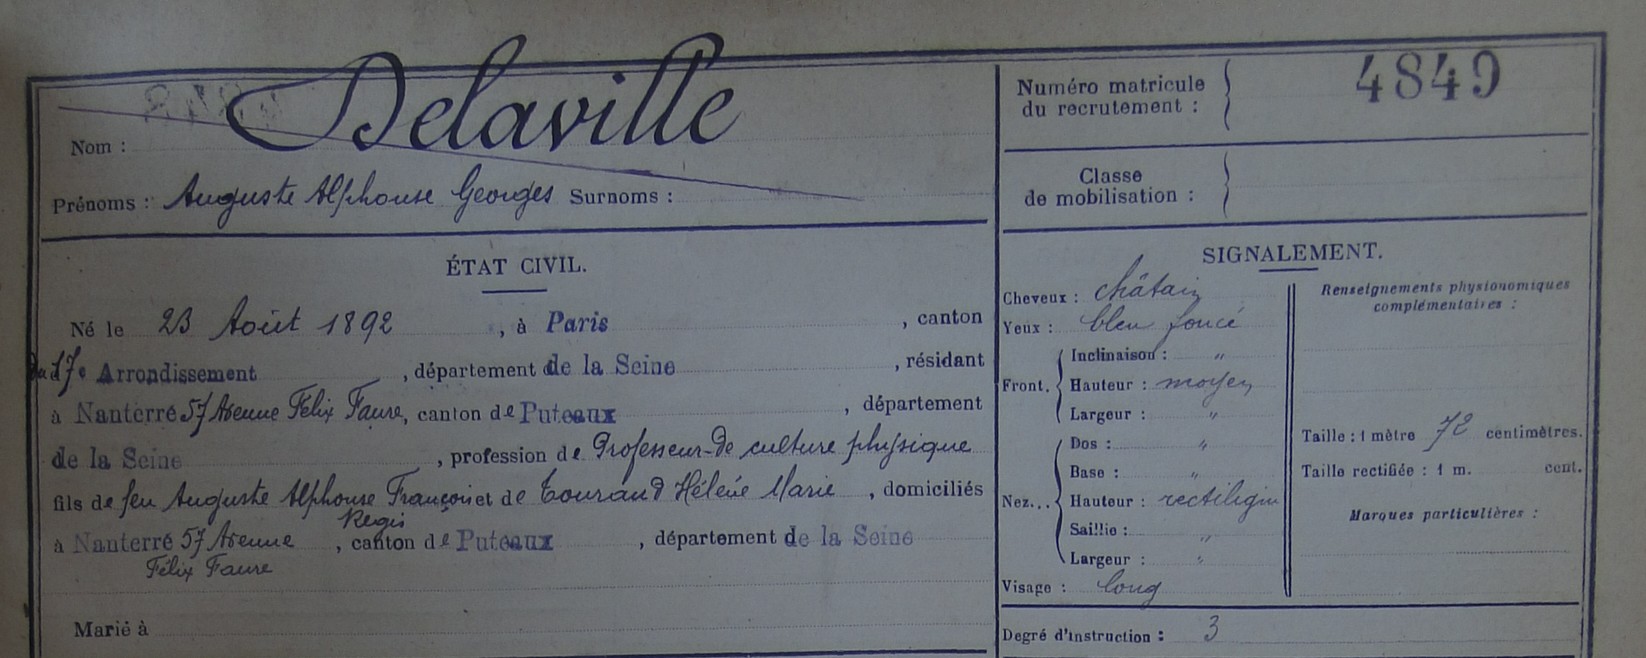 Nom : Delaville
Prénoms : Auguste Alphonse Georges Surnoms :
ÉTAT CIVIL.
Né le 23 Août 1892, à Paris, canton
du 17e Arrondissement, département de la Seine, résidant
à Nanterre 57 Avenue Félix Faure, canton de Puteaux, département
de la Seine, profession de Professeur de culture physique
fils de feu Auguste Alphonse François et de Touraud Hélène Marie, domiciliés
Regis
à Nanterre 57 Avenue, canton de Puteaux, département de la Seine
Félix Faure
Marié à
Numéro matricule
du recrutement : 4849
Classe
de mobilisation :
SIGNALEMENT.
Cheveux : châtain
Yeux : bleu foncé
Front.
Inclinaison : "
Hauteur : moyen
Largeur : "
Nez...
Dos : "
Base : "
Hauteur : rectiligne
Saillie : "
Largeur : "
Visage : long
Renseignements physionomiques
complémentaires :
Taille : 1 mètre 72 centimètres.
Taille rectifiée : 1 m. cent.
Marques particulières :
Degré d'instruction : 3